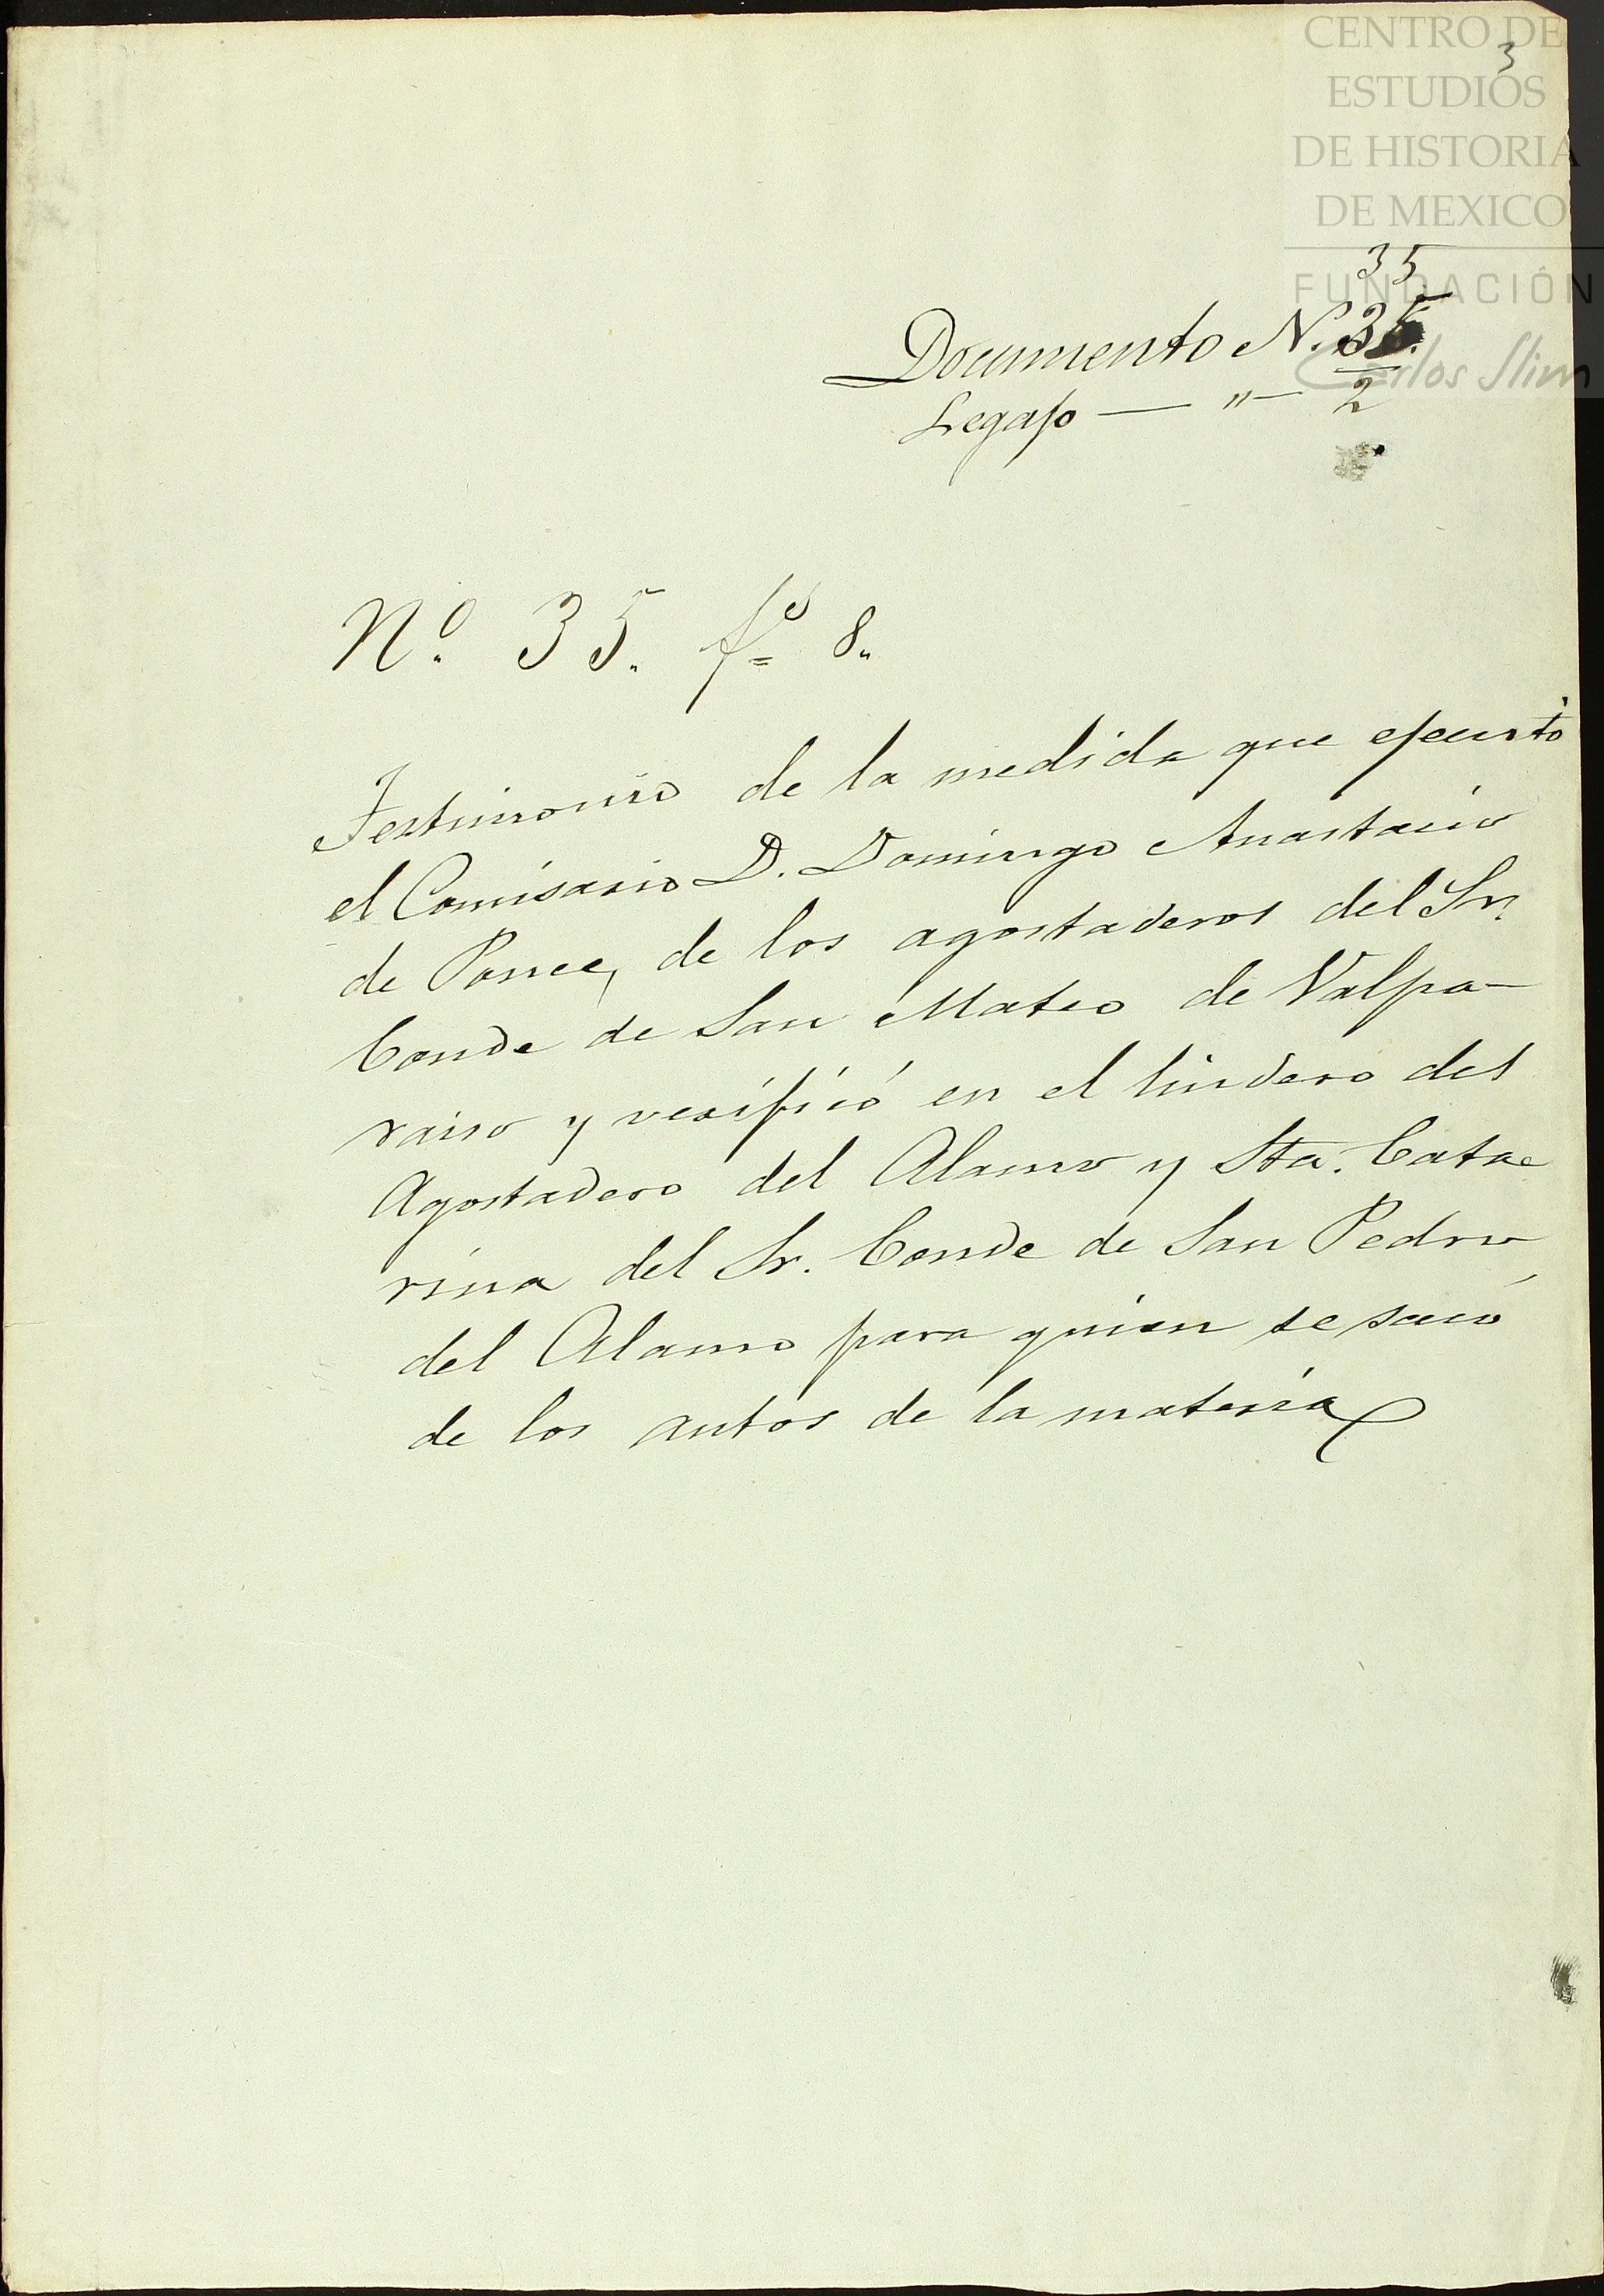 CENTRO DE
3
ESTUDIOS
DE HISTORIA
DE MEXICO
35
FUNDACIÓN
Documento N. 35.
Carlos Slim
Legajo — " — 2
Nº. 35. fs. 8.
Testimonio de la medida que ejecutó
el Comisario D. Domingo Anastacio
de Ponce, de los agostaderos del Sr.
Conde de San Mateo de Valpa-
raiso y verificó en el lindero del
Agostadero del Alamo y Sta. Cata-
rina del Sr. Conde de San Pedro
del Alamo para quien se sacó
de los autos de la materia